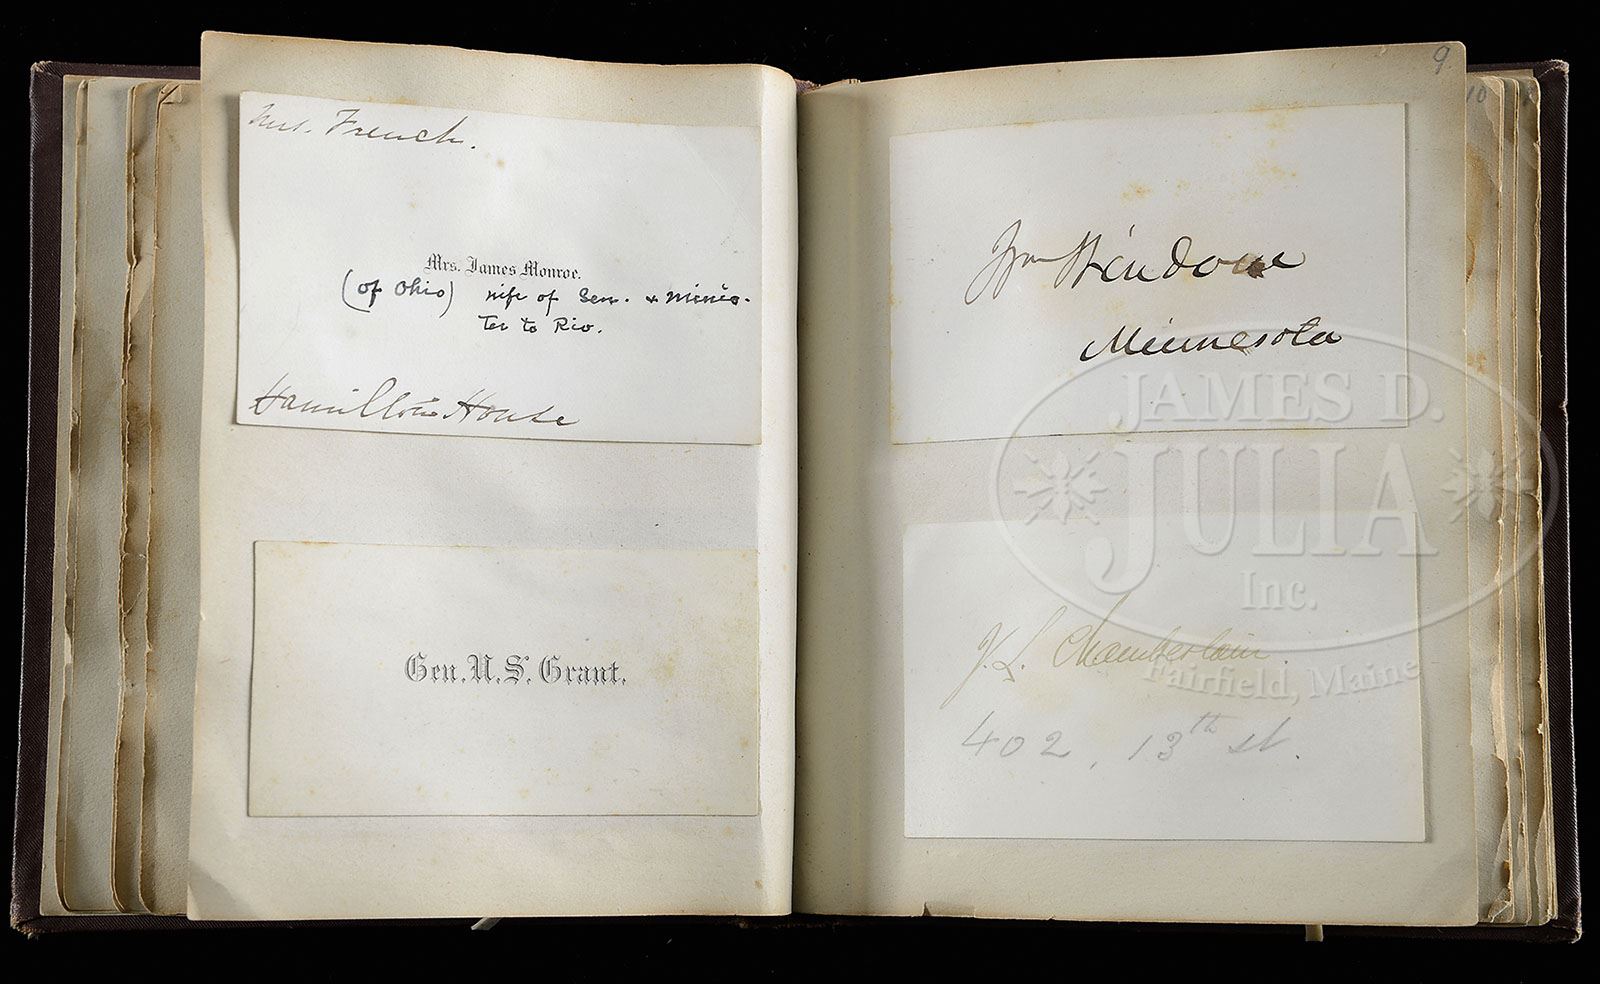 Mrs. French.
Mrs. James Monroe.
(of Ohio) wife of Sen. & Minis-
ter to Rio.
Hamilton House
Gen. U. S. Grant.
9
10
Wm Windom
Minnesota
J. L. Chamberlain.
402, 13th st.
JAMES D.
JULIA
Inc.
Fairfield, Maine